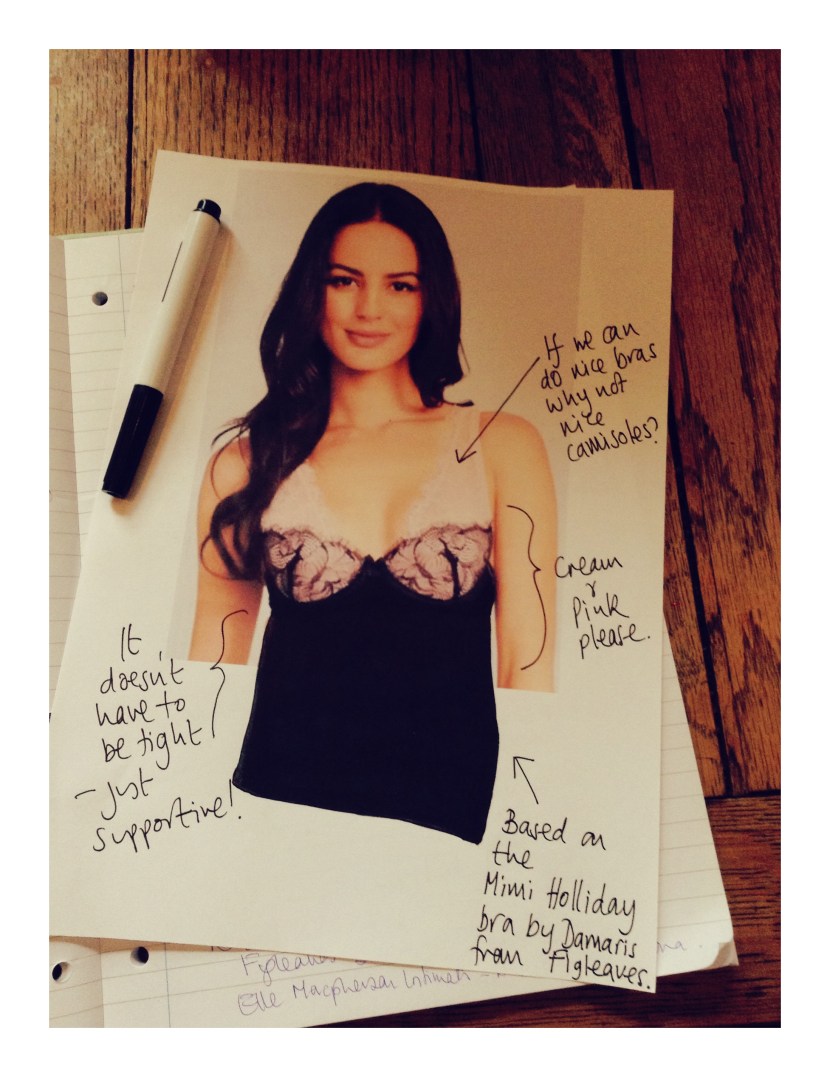 If we can
do nice bras
why not
nice
camisoles?
Cream
&
Pink
please.
It
doesn't
have to
be tight
- just
supportive!
Based on
the
Mimi Holliday
bra by Damaris
from Figleaves.
Figleaves
Elle Macpherson Intimates -